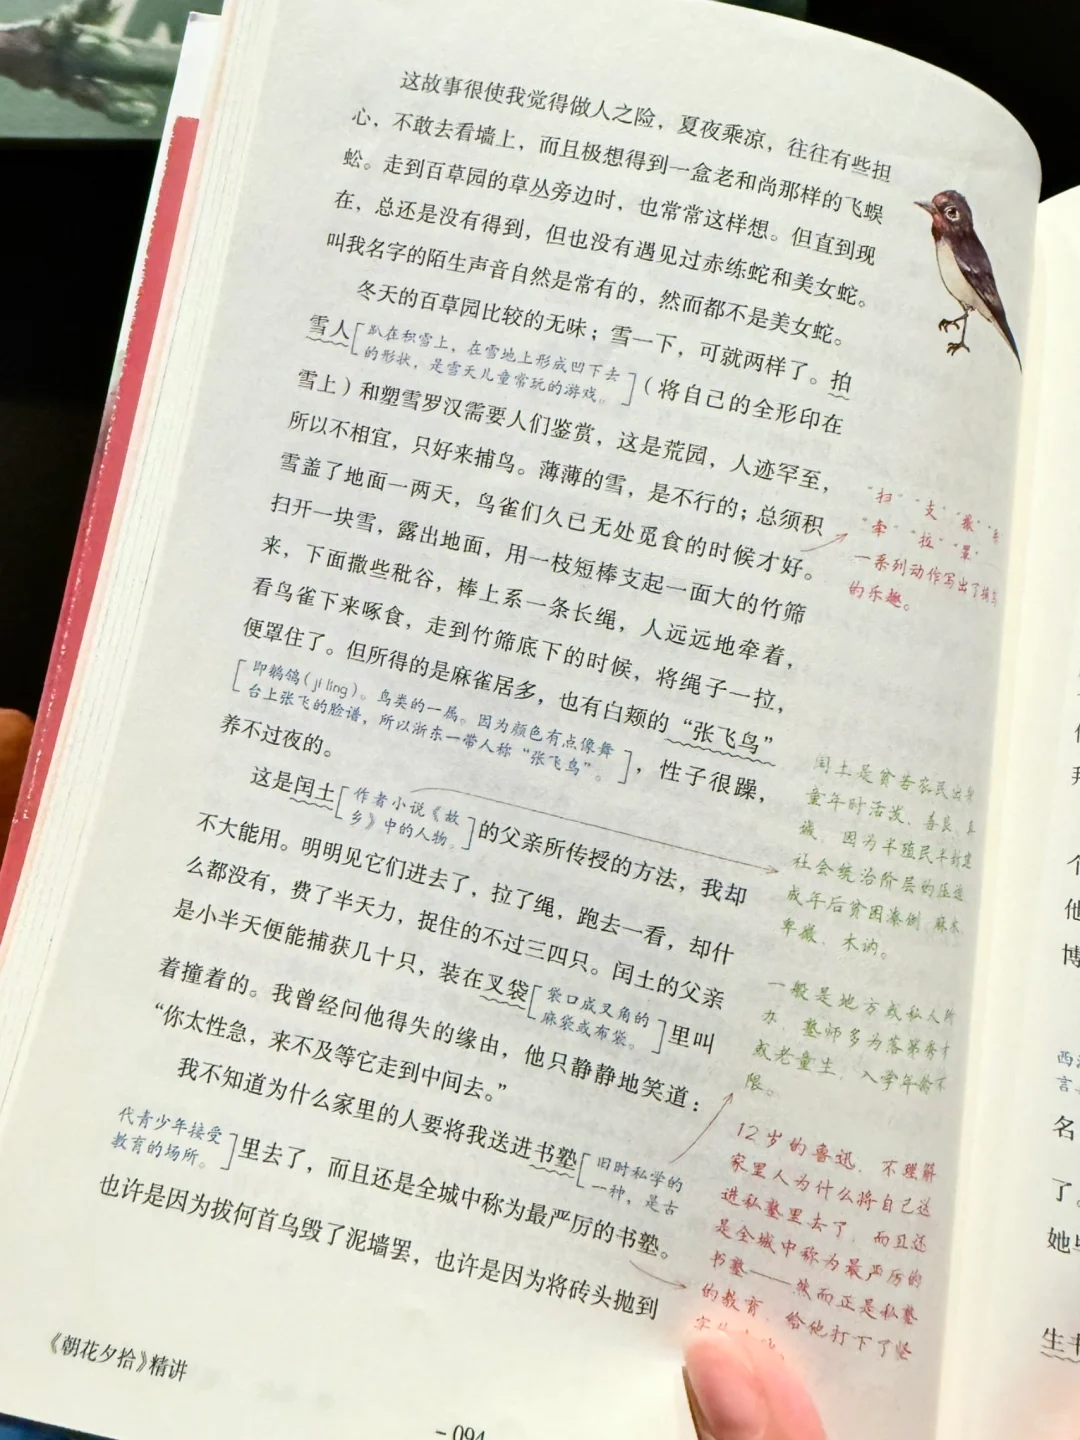 这故事很使我觉得做人之险，夏夜乘凉，往往有些担
心，不敢去看墙上，而且极想得到一盒老和尚那样的飞蜈
蚣。走到百草园的草丛旁边时，也常常这样想。但直到现
在，总还是没有得到，但也没有遇见过赤练蛇和美女蛇。
叫我名字的陌生声音自然是常有的，然而都不是美女蛇。
冬天的百草园比较的无味；雪一下，可就两样了。拍
雪人[趴在积雪上，在雪地上形成凹下去
的形状，是雪天儿童常玩的游戏。]（将自己的全形印在
雪上）和塑雪罗汉需要人们鉴赏，这是荒园，人迹罕至，
所以不相宜，只好来捕鸟。薄薄的雪，是不行的；总须积
雪盖了地面一两天，鸟雀们久已无处觅食的时候才好。
扫开一块雪，露出地面，用一枝短棒支起一面大的竹筛
来，下面撒些秕谷，棒上系一条长绳，人远远地牵着，
看鸟雀下来啄食，走到竹筛底下的时候，将绳子一拉，
便罩住了。但所得的是麻雀居多，也有白颊的“张飞鸟”
[即鹡鸰（jí líng）。鸟类的一属。因为颜色有点像舞
台上张飞的脸谱，所以浙东一带人称“张飞鸟”。]，性子很躁，
养不过夜的。
这是闰土[作者小说《故
乡》中的人物。]的父亲所传授的方法，我却
不大能用。明明见它们进去了，拉了绳，跑去一看，却什
么都没有，费了半天力，捉住的不过三四只。闰土的父亲
是小半天便能捕获几十只，装在叉袋[袋口成叉角的
麻袋或布袋。]里叫
着撞着的。我曾经问他得失的缘由，他只静静地笑道：
“你太性急，来不及等它走到中间去。”
我不知道为什么家里的人要将我送进书塾[旧时私学的
一种，是古
代青少年接受
教育的场所。]里去了，而且还是全城中称为最严厉的书塾。
也许是因为拔何首乌毁了泥墙罢，也许是因为将砖头抛到
“扫”“支”“撒”“系”
“牵”“拉”“罩”
一系列动作写出了捕鸟
的乐趣。
闰土是贫苦农民出身
童年时活泼、善良、真
诚，因为半殖民半封建
社会统治阶层的压迫
成年后贫困潦倒、麻木
卑微、木讷。
一般是地方或私人所
办，塾师多为落第秀才
或老童生，入学年龄不
限。
12岁的鲁迅，不理解
家里人为什么将自己送
进私塾里去了，而且还
是全城中称为最严厉的
书塾——然而正是私塾
的教育，给他打下了坚
《朝花夕拾》精讲
- 094